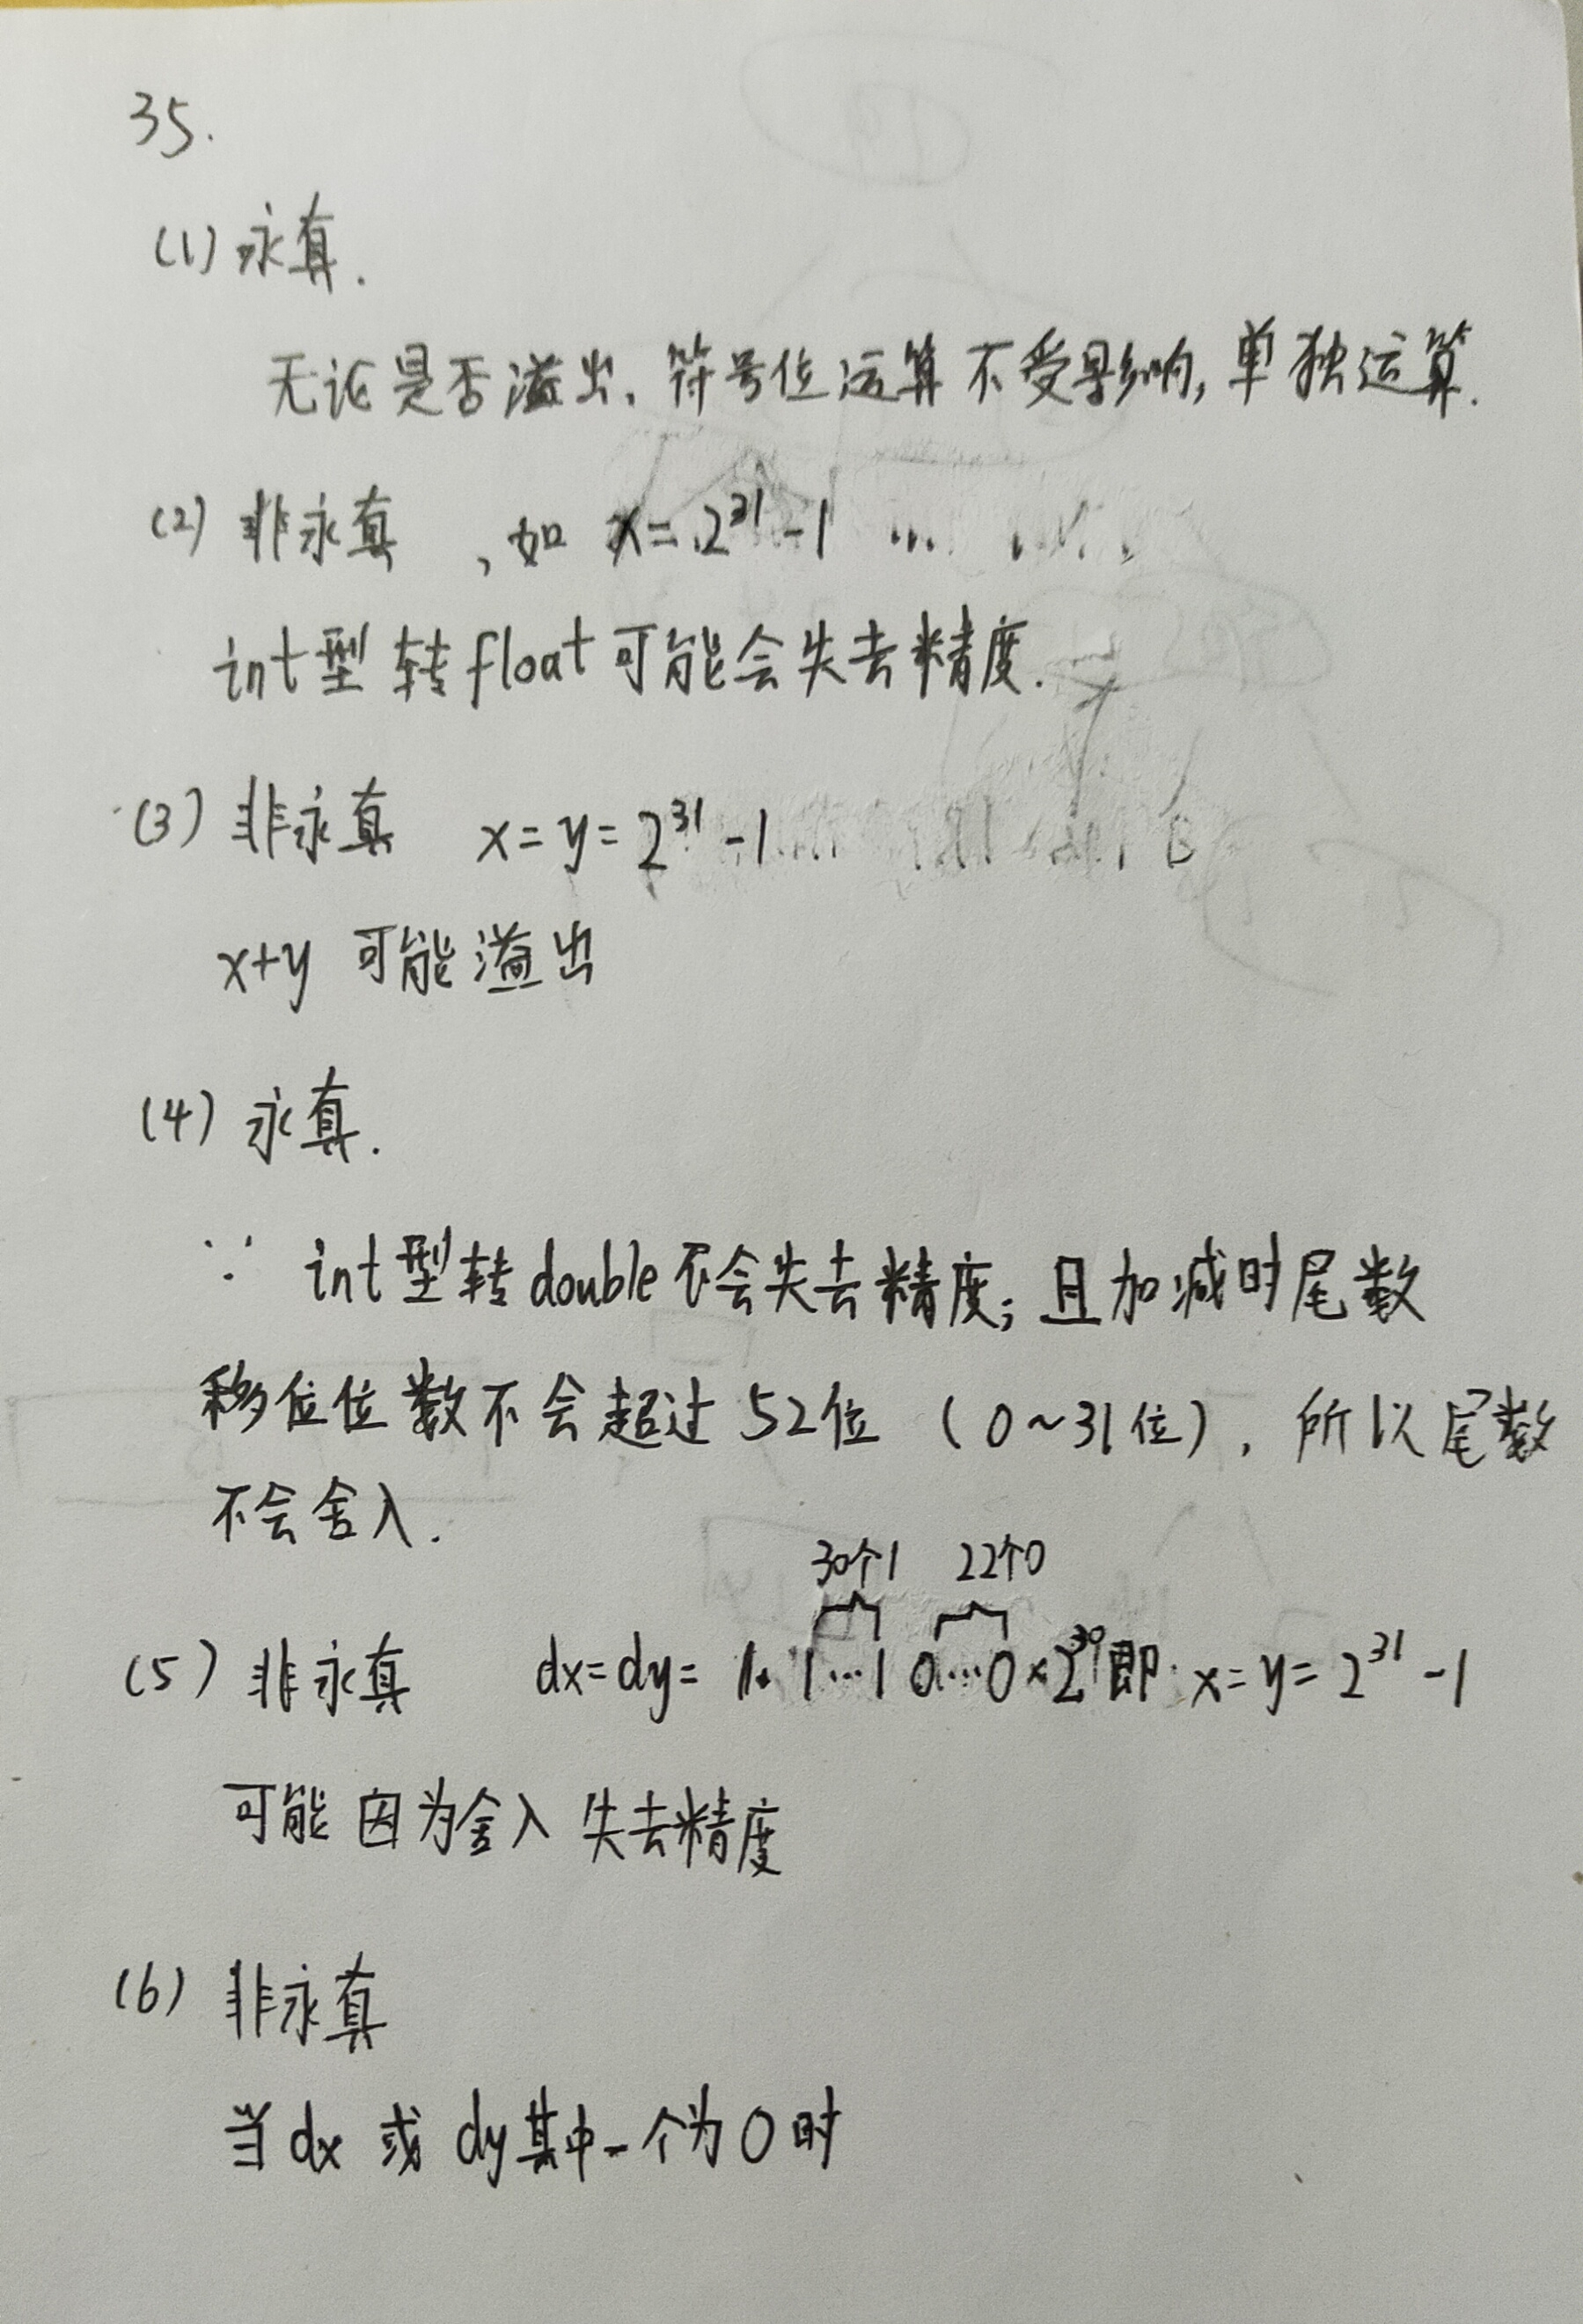 35.
(1) 永真.
无论是否溢出,符号位运算不受影响,单独运算.
(2) 非永真 ,如 x=2³¹-1
int型转float可能会失去精度.
(3) 非永真 x=y=2³¹-1
x+y 可能溢出
(4) 永真.
∵ int型转double不会失去精度;且加减时尾数
移位位数不会超过52位 (0~31位),所以尾数
不会舍入.
30个1 22个0
(5) 非永真 dx=dy= 1.1…10…0×2³⁰即 x=y=2³¹-1
可能因为舍入失去精度
(6) 非永真
当dx或dy其中一个为0时